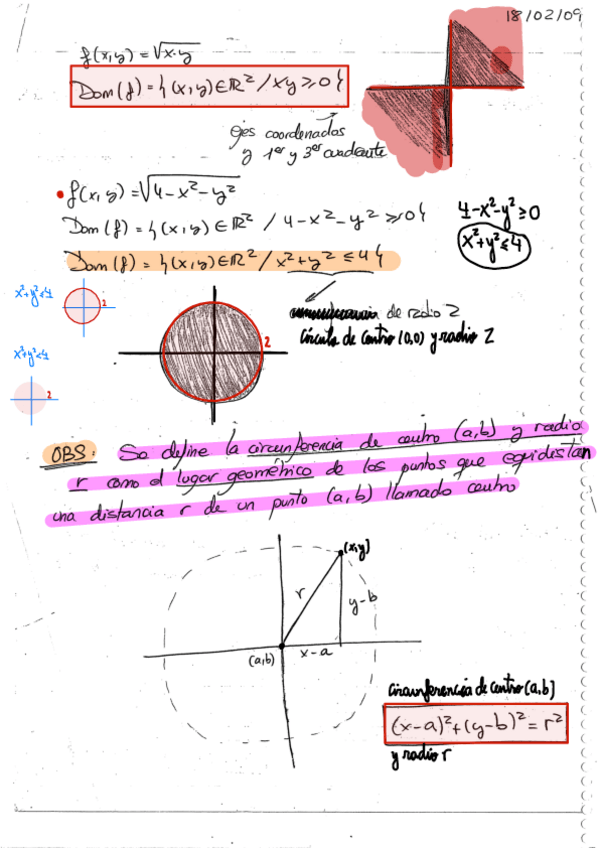 18/02/09
f(x,y)=√x·y
Dom(f)={(x,y)∈ℝ²/xy≥0}
ejes coordenados
y 1er y 3er cuadrante
• f(x,y)=√4-x²-y²
Dom(f)={(x,y)∈ℝ² / 4-x²-y²≥0}
4-x²-y²≥0
x²+y²≤4
Dom(f)={(x,y)∈ℝ²/x²+y²≤4}
x²+y²≤1
1
de radio 2
Círculo de centro (0,0) y radio 2
2
x²+y²<4
2
OBS: Se define la circunferencia de centro (a,b) y radio
r como el lugar geométrico de los puntos que equidistan
una distancia r de un punto (a,b) llamado centro
(x,y)
r
y-b
(a,b)
x-a
circunferencia de centro (a,b)
(x-a)²+(y-b)²=r²
y radio r